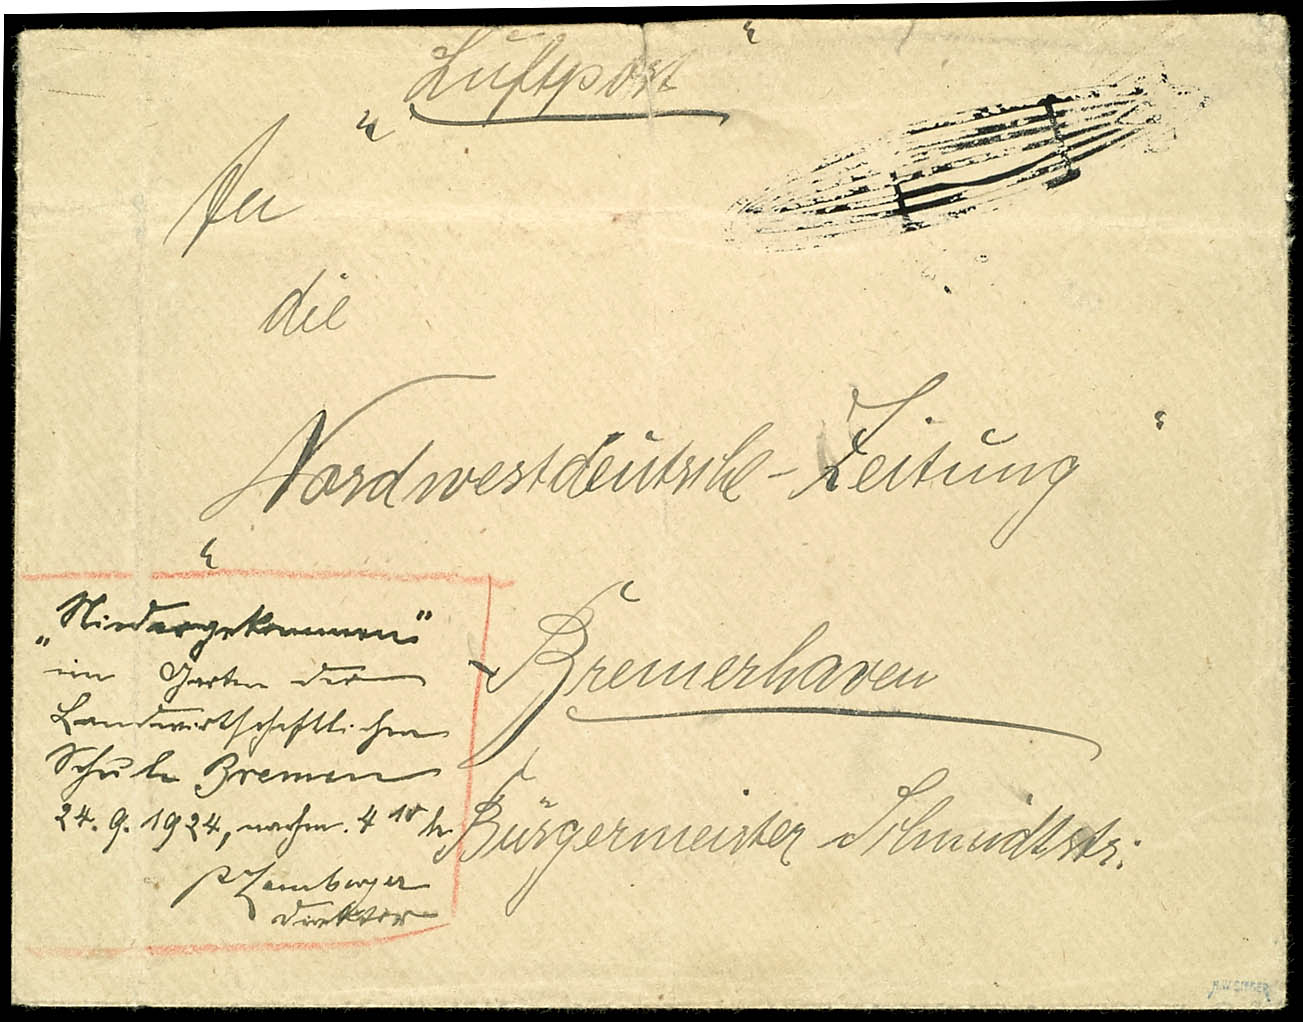 "Luftpost"
An
die
"Nordwestdeutsche-Zeitung"
Bremerhaven
Bürgermeister Schmidtstr:
„Niedergekommen"
im Garten der
Landwirtschaftlichen
Schule Bremen
24. 9. 1924, nachm. 4 10 h
Direktor